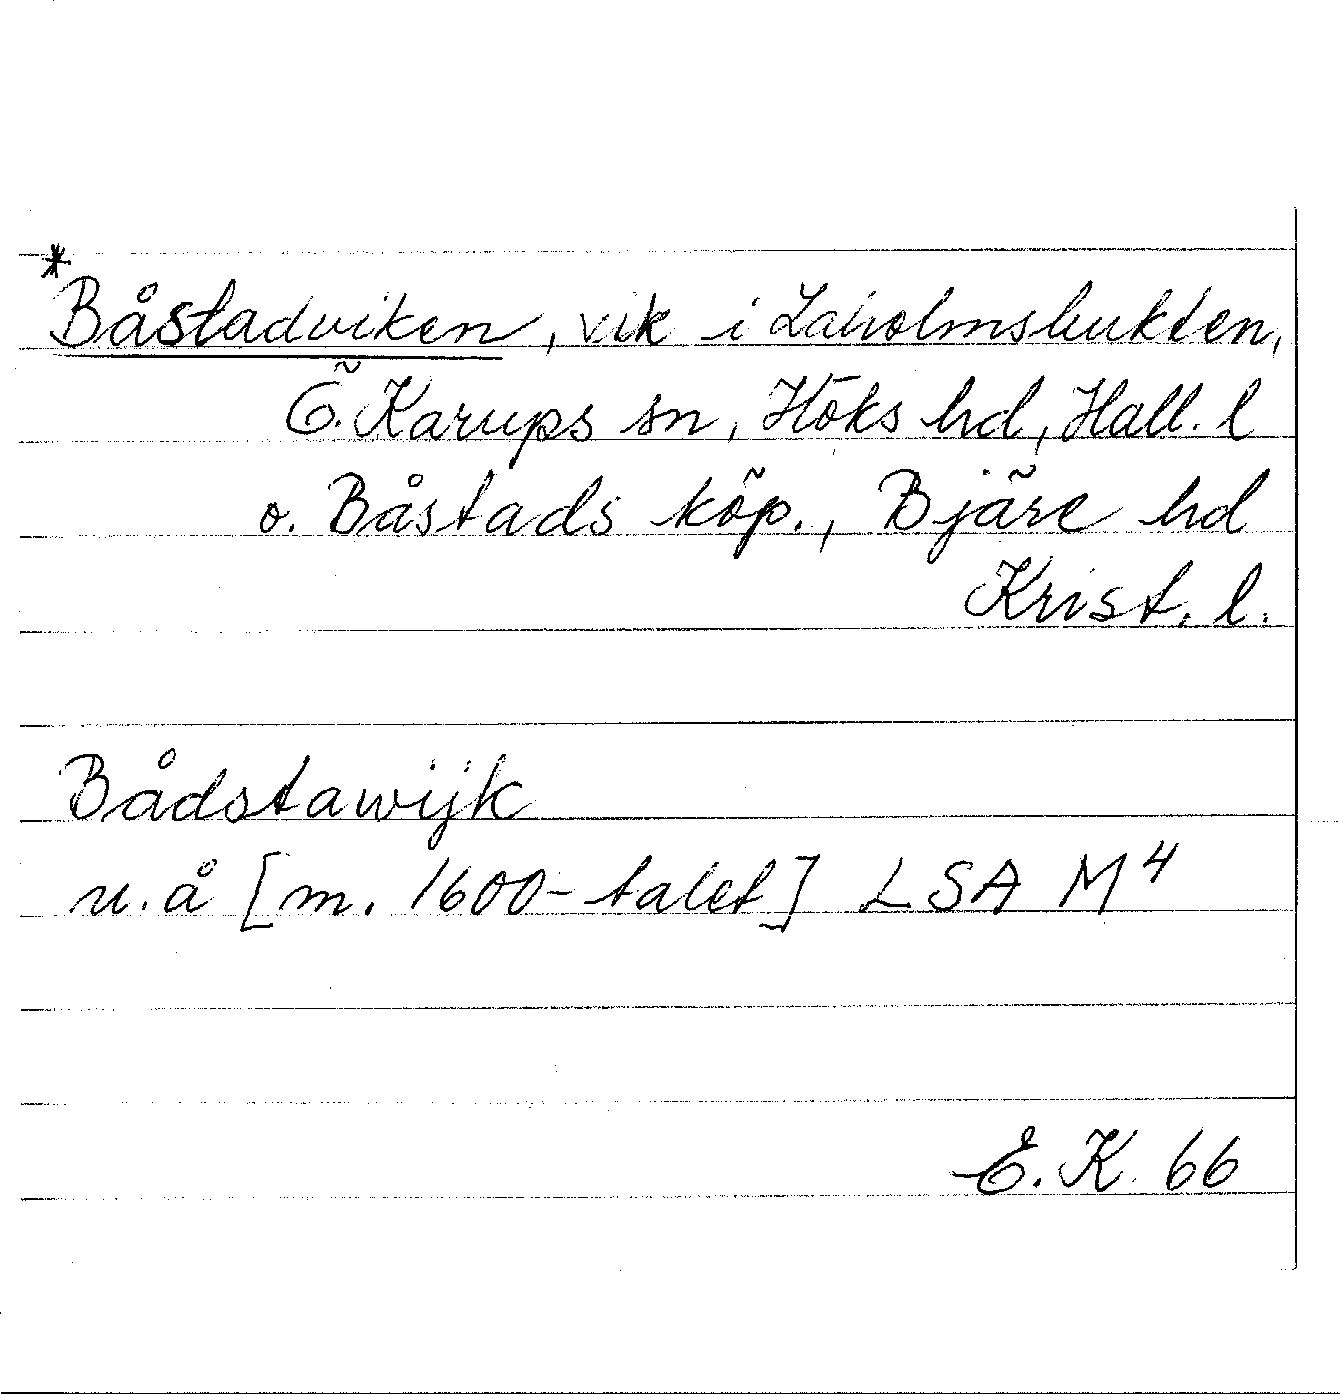 *Båstadviken, vik i Laholmsbukten,
Ö. Karups sn, Höks hd, Hall. l
o. Båstads köp., Bjäre hd
Krist. l.
Bådstawijk
u. å [m. 1600-talet] LSA M⁴
E. K. 66